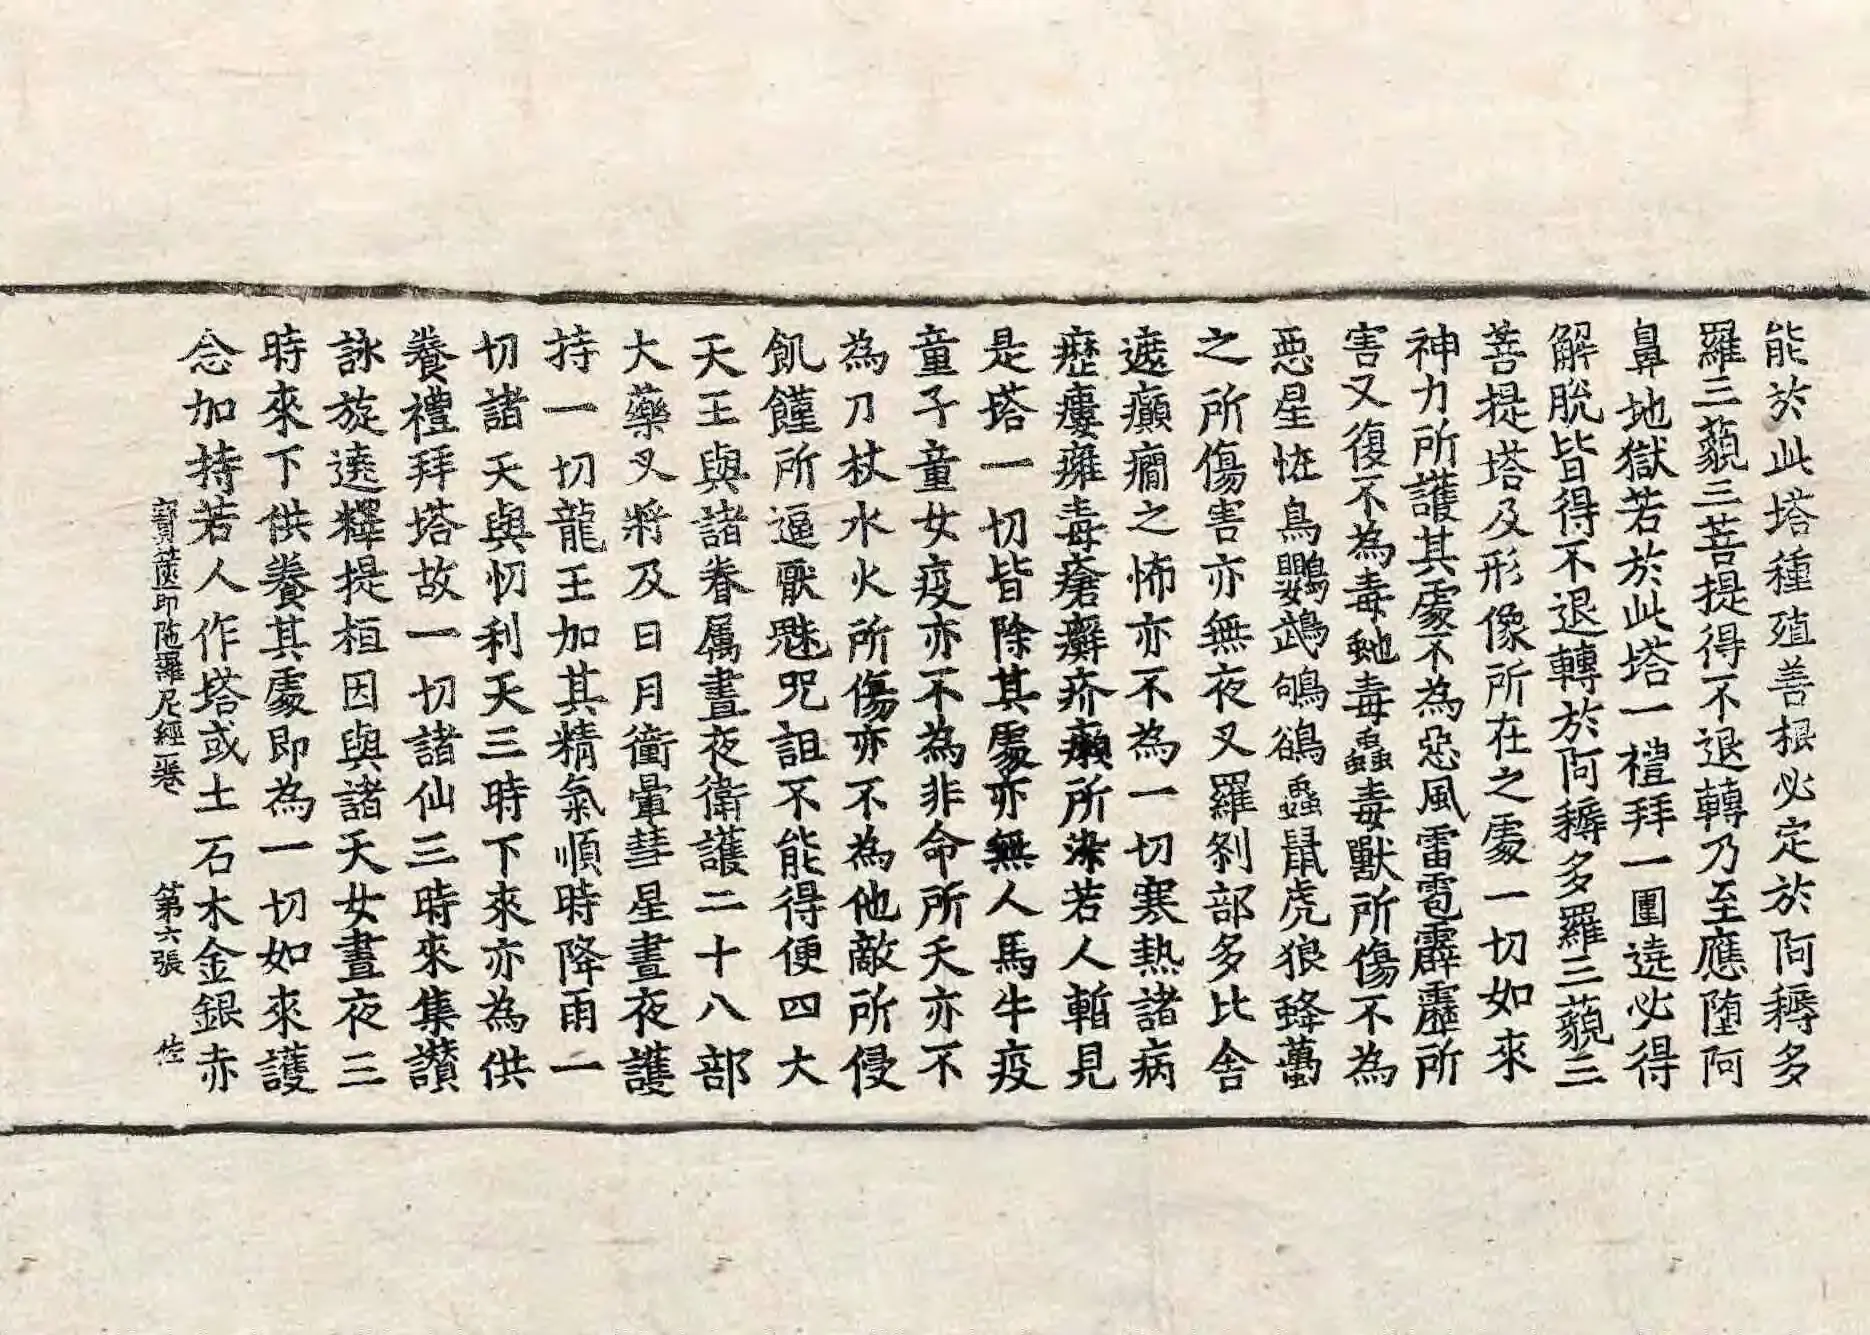 能於此塔種殖善根必定於阿耨多
羅三藐三菩提得不退轉乃至應墮阿
鼻地獄若於此塔一禮拜一圍遶必得
解脫皆得不退轉於阿耨多羅三藐三
菩提塔及形像所在之處一切如來
神力所護其處不為惡風雷雹霹靂所
害又復不為毒虵毒蟲毒獸所傷不為
惡星恠鳥鸚鵡鴝鵒蟲鼠虎狼蜂蠆
之所傷害亦無夜叉羅剎部多比舍
遮癲癇之怖亦不為一切寒熱諸病
癧瘻癰毒瘡癬疥癩所染若人暫見
是塔一切皆除其處亦無人馬牛疫
童子童女疫亦不為非命所夭亦不
為刀杖水火所傷亦不為他敵所侵
飢饉所逼厭魅呪詛不能得便四大
天王與諸眷属晝夜衛護二十八部
大藥叉將及日月衝暈彗星晝夜護
持一切龍王加其精氣順時降雨一
切諸天與忉利天三時下來亦為供
養禮拜塔故一切諸仙三時來集讃
詠旋遶釋提桓因與諸天女晝夜三
時來下供養其處即為一切如來護
念加持若人作塔或土石木金銀赤
寶篋印陁羅尼經一卷 第六張